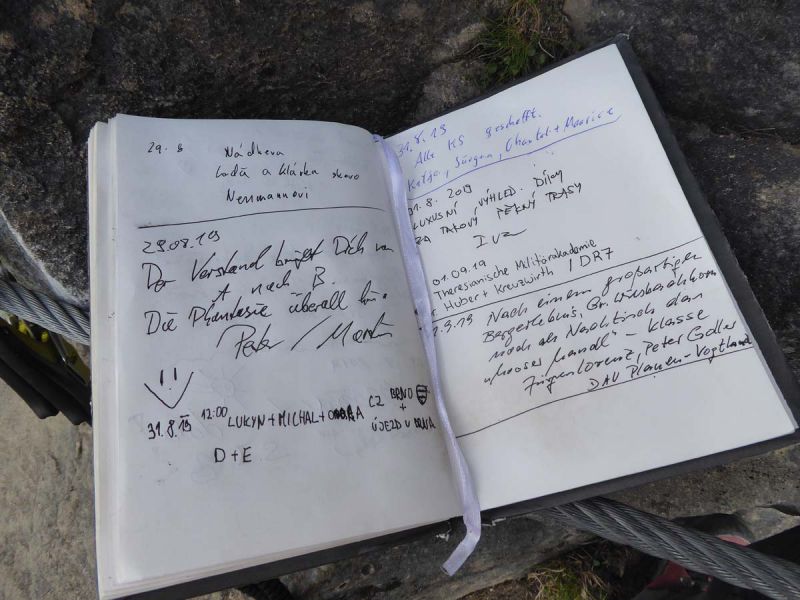 29. 8 Nádhera
Laďa a Klárka skoro
Neumannovi
29.08.19
Der Verstand bringt Dich von
A nach B.
Die Phantasie überall hin.
Peter / Martin
!!
31.8.19 12:00 LUKYN+MICHAL+ CZ BRNO
+
ÚJEZD U BRNA
D+E
31.8.19
Alle KS geschafft.
Katja, Jürgen, Chantal + Maurice
31.8. 2019
LUXUSNÍ VÝHLED. DÍKY
ZA TAKOVÝ PĚKNÝ TRASY
IVZ
01.09.19
Theresianische Militärakademie
Huber + Kreuzwirth / DR7
1.9.19 Nach einem großartigen
Bergerlebnis, Gr. Wiesbachhorn
noch als Nachtisch das
"Mooser Mandl" - Klasse
Jürgen Lorenz, Peter
DAV Plauen-Vogtland